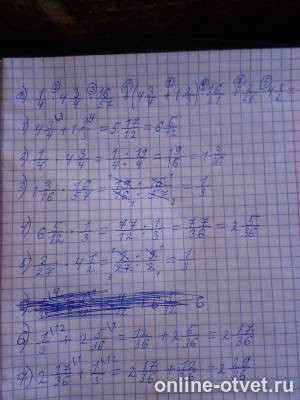 1) 4 3/4 + 1 2/3 = 5 17/12 = 6 5/12
2) 1/4 · 4 3/4 = 1/4 · 19/4 = 19/16 = 1 3/16
3) 1 3/16 · 16/57 = 19/16 · 16/57 = 1/3
4) 6 5/12 · 1/3 = 77/12 · 1/3 = 77/36 = 2 5/36
5) 2/27 · 4 1/2 = 2/27 · 9/2 = 1/3
6) 1/3 + 2 5/36 = 12/36 + 2 5/36 = 2 17/36
7) 2 17/36 + 1/3 = 2 17/36 + 12/36 = 2 29/36
online-otvet.ru